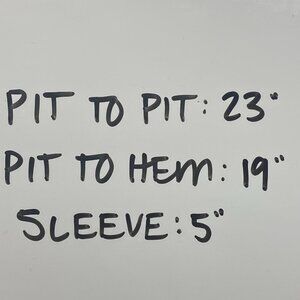 PIT TO PIT: 23"
PIT TO HEM: 19"
SLEEVE: 5"